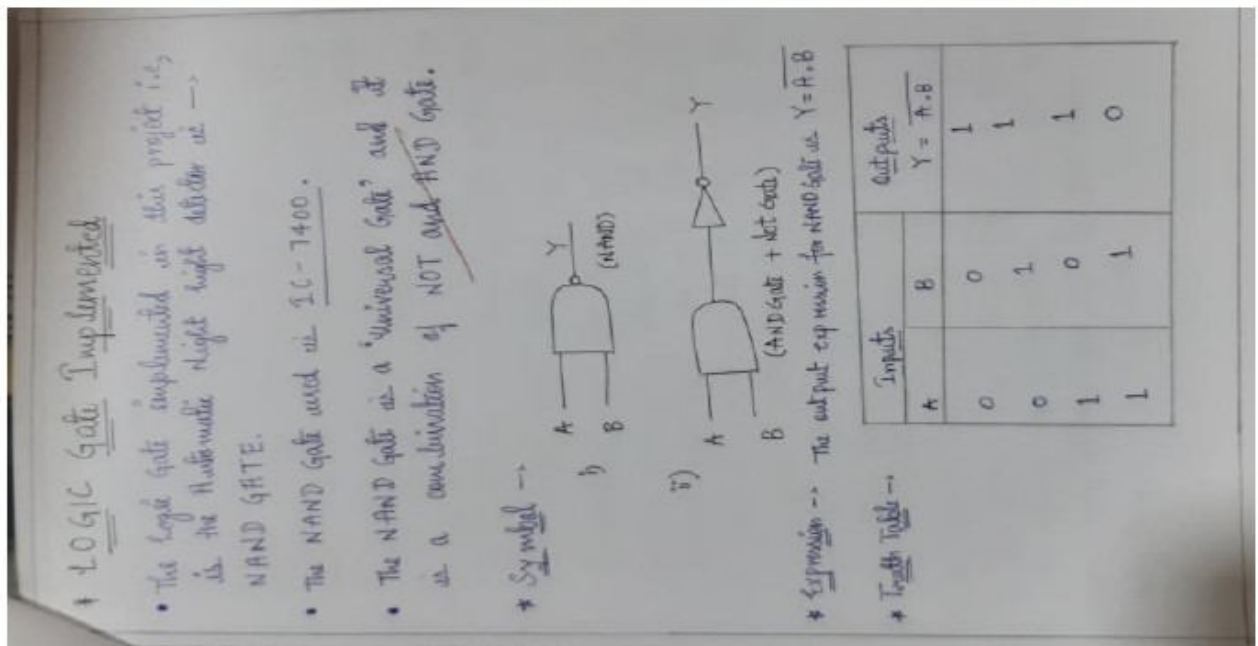 * LOGIC Gate Implemented
• The Logic Gate implemented in this project i.e,
is the Automatic Night light detector is -->
NAND GATE.
• The NAND Gate used is IC-7400.
• The NAND Gate is a "Universal Gate" and it
is a combination of NOT and AND Gate.
* Symbol -->
i) A
B
Y
(NAND)
ii) A
B
Y
(AND Gate + Not Gate)
* Expression --> The output expression for NAND Gate is Y = \overline{A.B}
* Truth Table -->
Inputs Outputs
A B Y = \overline{A.B}
0 0 1
0 1 1
1 0 1
1 1 0